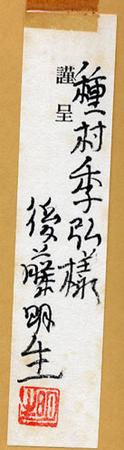 種村季弘様
謹呈
後藤明生